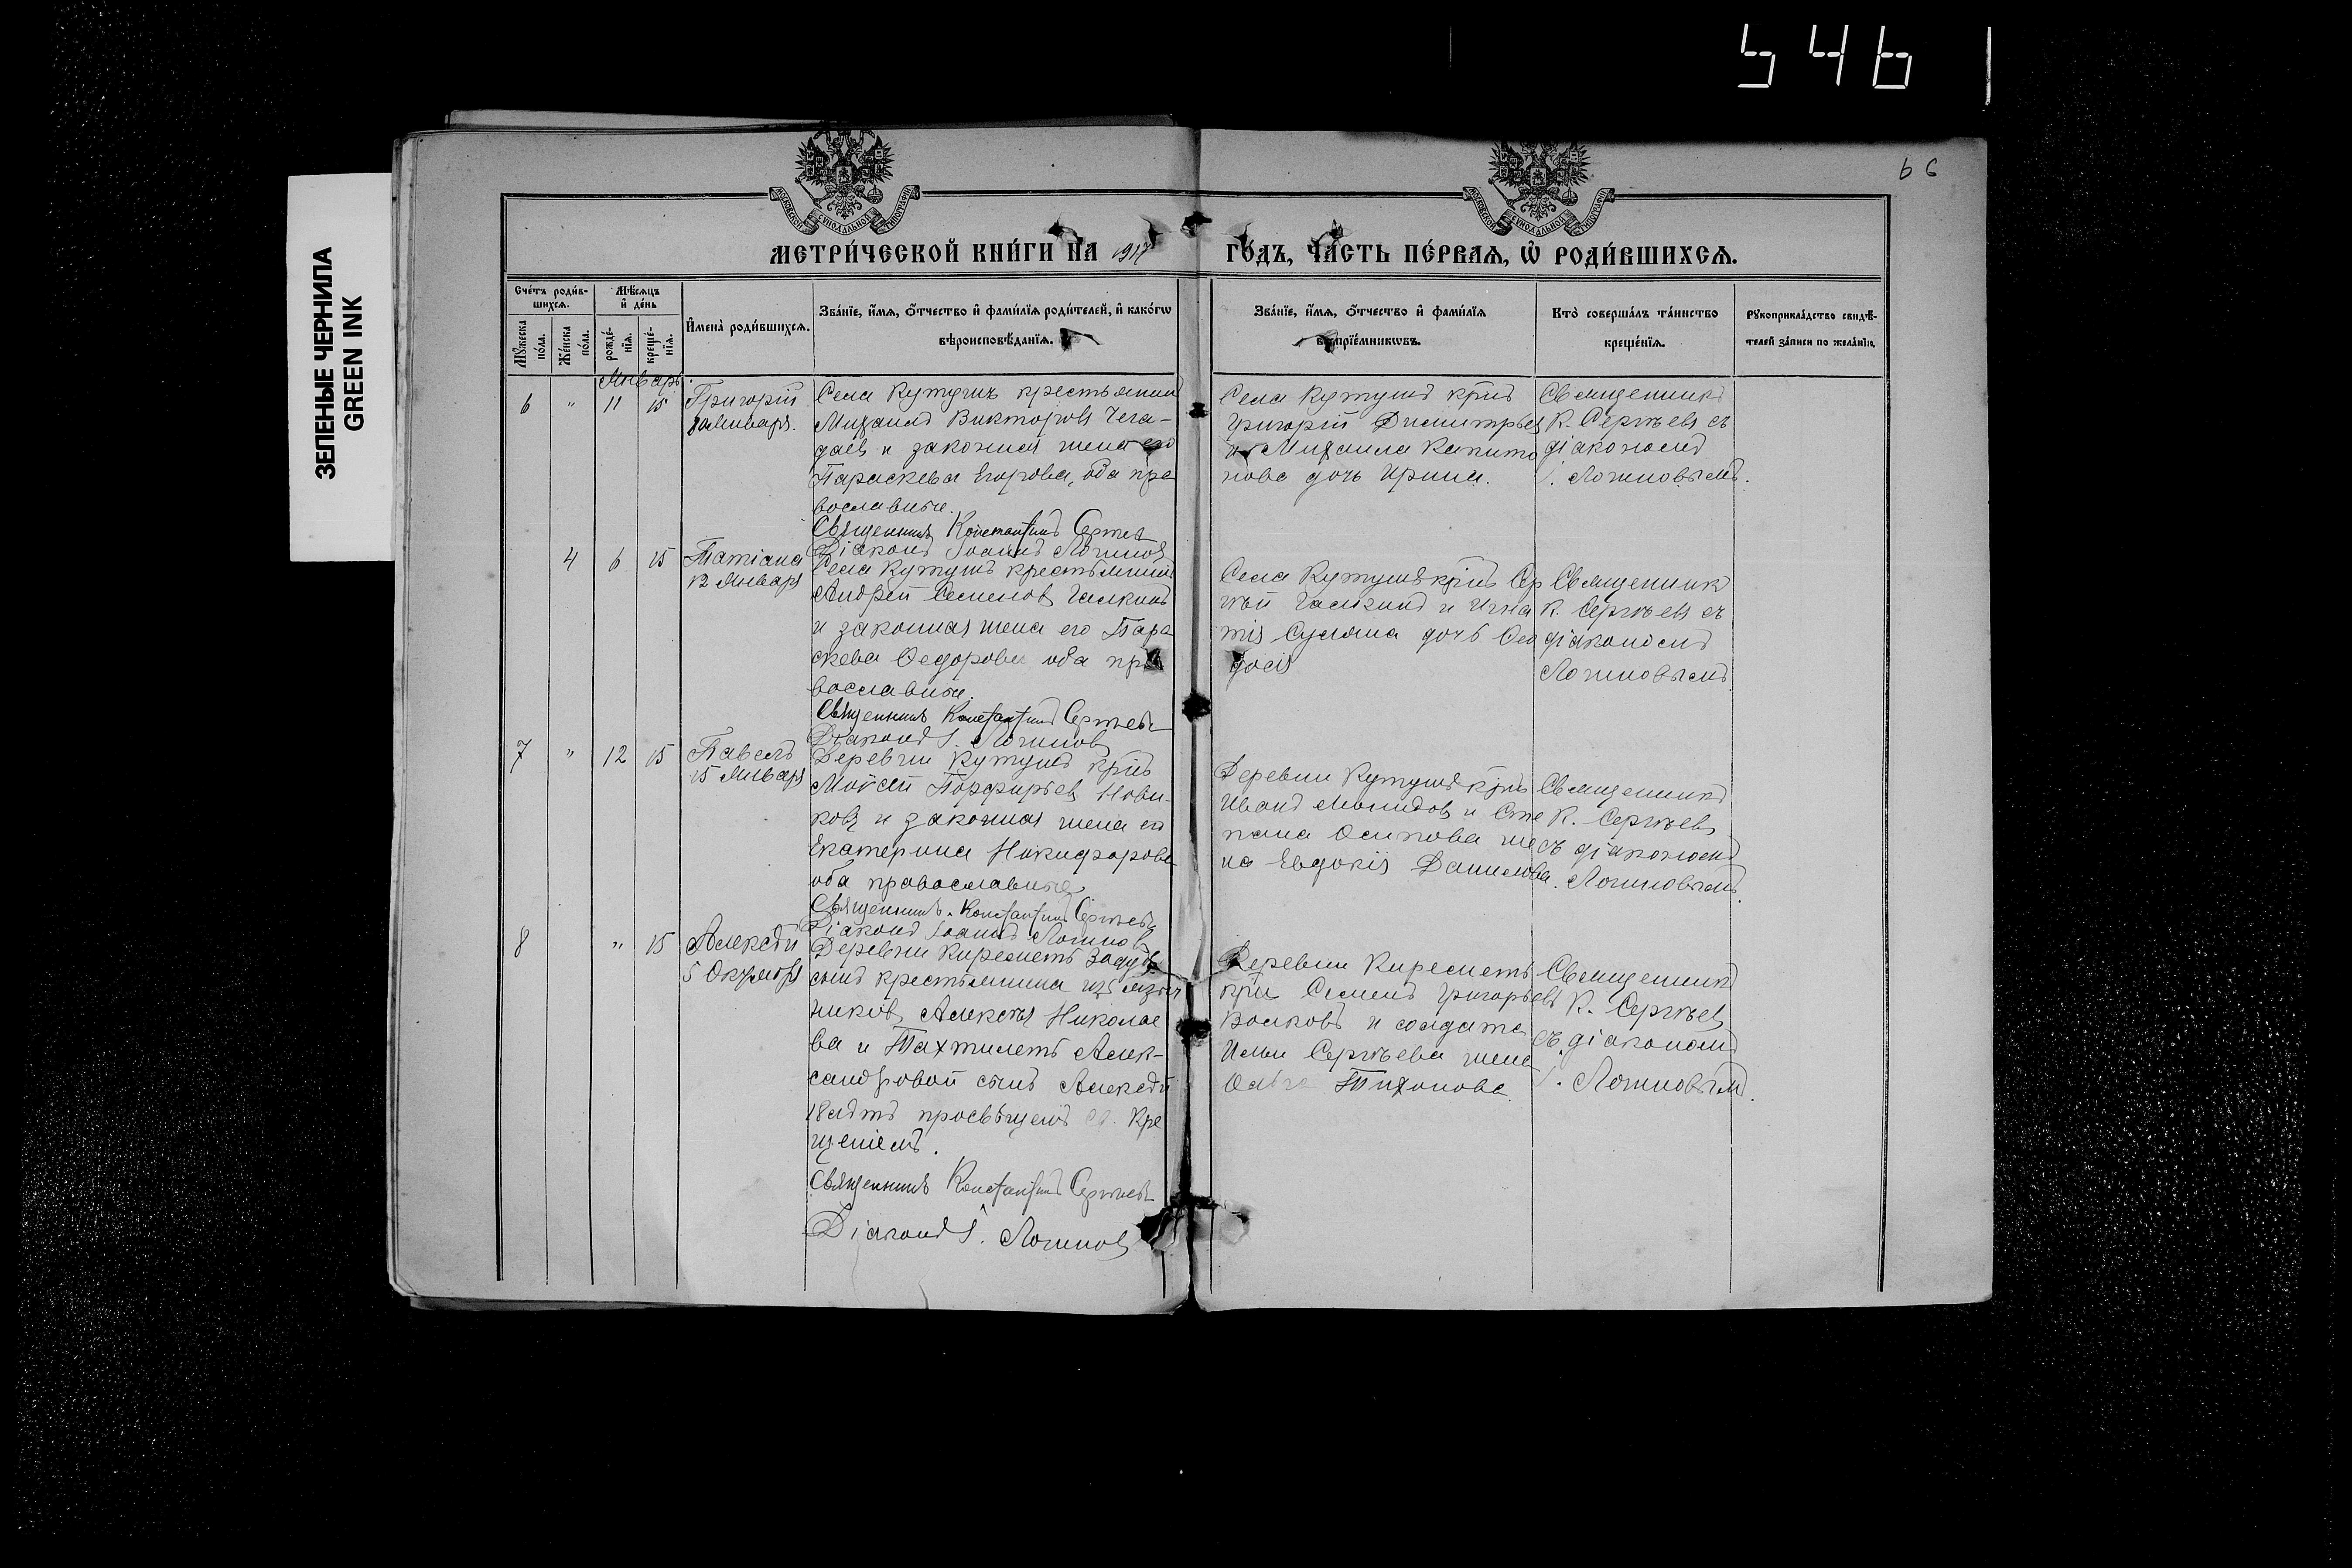 546
66
ЗЕЛЕНЫЕ ЧЕРНИЛА
GREEN INK
МЕТРИ́ЧЕСКОЙ КНИ́ГИ НА 1917 ГО́ДЪ, ЧА́СТЬ ПЕ́РВАЯ, Ѡ РОДИ́ВШИХСЯ.
Сче́тъ роди́в-
шихся.
Мꙋ́жеска по́ла.
Же́нска по́ла.
Мѣ́сяцъ и҆ де́нь
рожде́-
нїя.
креще́-
нїя.
И҆мена̀ роди́вшихся.
Зва́нїе, и҆́мя, ѻ҆́тчество и҆ фами́лїя роди́телей, и҆ како́гѡ
вѣроисповѣ́данїя.
Зва́нїе, и҆́мя, ѻ҆́тчество и҆ фами́лїя
воспрїе́мникѡвъ.
Кто̀ соверша́лъ та́инство
креще́нїя.
Рꙋкоприкла́дство свидѣ́-
телей за́писи по жела́нїю.
Январь.
6 " 11 15
Григорій
Января.
Села Кутушъ крестьянинъ
Михаилъ Викторовъ Чега-
даев и законная жена его
Параскева Егорова, оба пра
вославные.
Священникъ Константинъ Сергѣев
Діаконъ Іоаннъ Логинов
Села Кутушъ крнъ
Григорій Димитріев
и Михаила Капито
нова дочь Ирина.
Священникъ
К. Сергѣевъ съ
діакономъ
І. Логиновымъ.
4 6 15
Татіана
12 Января
Села Кутушъ крестьянинъ
Андрей Семенов Галкинъ
и законная жена его Пара
скева Ѳедорова оба пра
вославные.
Священникъ Константинъ Сергѣевъ
Діаконъ І. Логинов
Села Кутушъ крнъ Сер
гѣй Галкинъ и Игна
тія дочь Ѳео
досія
Священникъ
К. Сергѣевъ съ
діакономъ
Логиновымъ
7 " 12 15
Павелъ
15 Января
Деревни Кутушъ крнъ
Моѵсей Порфирьев Нови-
ковъ и законная жена его
Екатерина Никифорова
оба православные
Священникъ Константинъ Сергѣевъ
Діаконъ Іоаннъ Логинов
Деревни Кутушъ крнъ
Иванъ и Сте
пана Осипова же
на Евдокія Данилова
Священникъ
К. Сергѣевъ
съ діакономъ
Логиновымъ.
8 " 15
Алексѣй
5 Октября
Деревни Киреметь
сынъ крестьянина изъ языч
никовъ Алексѣя Николае
ва и Тахтилетъ Алек-
сандровой сынъ Алексѣй
18 лѣтъ просвѣщенъ св. Кре
щеніемъ.
Священникъ Константинъ Сергѣевъ
Діаконъ І. Логиновъ
Деревни Киреметь
крн Семенъ Григорьевъ
Волковъ и солдата
Ильи Сергѣева жена
Ольга Тихонова.
Священникъ
К. Сергѣевъ
съ діакономъ
І. Логиновымъ.